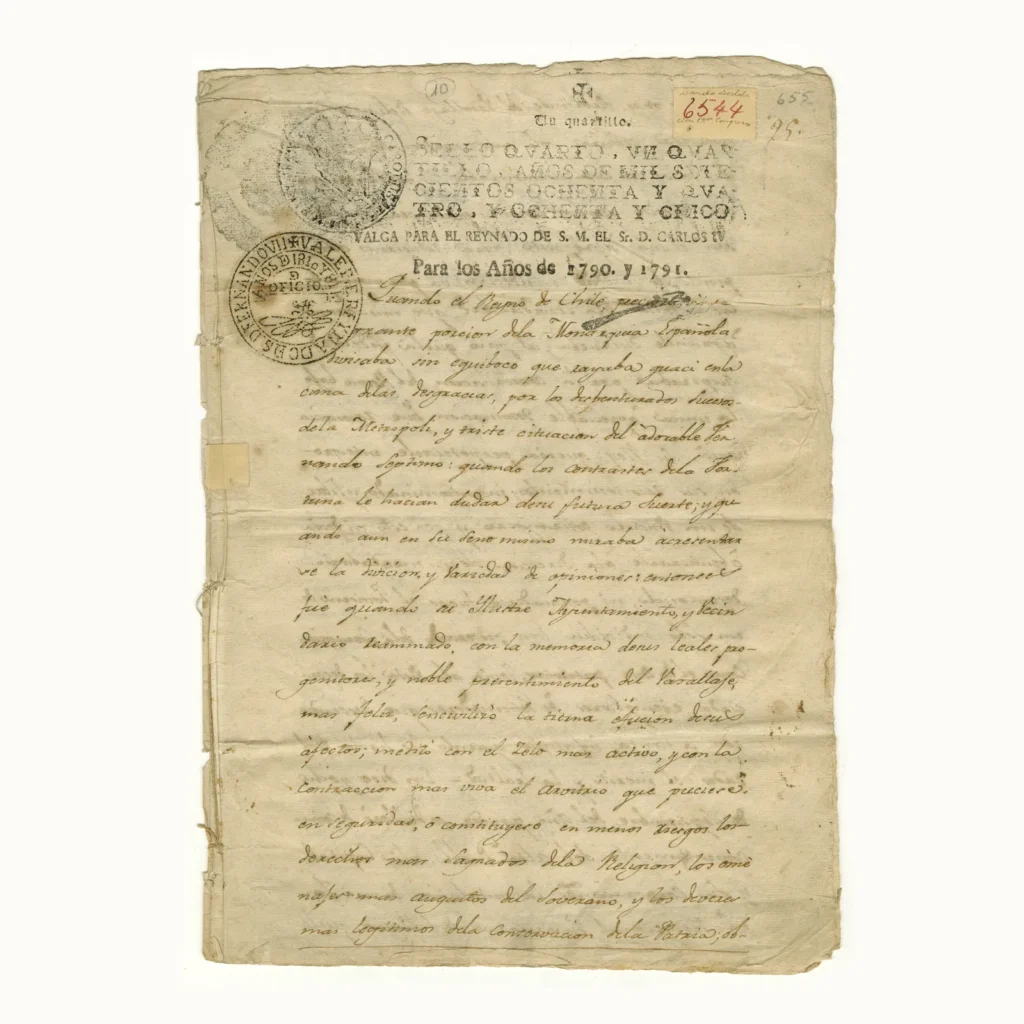 10
Un quartillo.
6544
655
95.
SELLO QVARTO, VN QVAR
TILLO, AÑOS DE MIL SETE
CIENTOS OCHENTA Y QVA-
TRO, Y OCHENTA Y CINCO.
VALGA PARA EL REYNADO DE S. M. EL Sr. D. CARLOS IV
Para los Años de 1790. y 1791.
VALE P. EL REYNADO DE S D FERNANDO VII
AÑOS D 1810 Y
D
OFICIO
Quando el Reyno de Chile,
porcion dela Monarquia Española
sin equiboco que rayaba quaci enla
cima delas desgracias, por los desbenturados sucesos
dela Metropoli, y triste cituacion del adorable Fer
nando Septimo: quando los contrastes dela For-
tuna le hacian dudar desu futura suerte; y qu
ando aun en su seno mismo miraba acresentar
se la divicion, y variedad de opiniones: entonces
fue quando su Ilustre Ayuntamiento, y Vecin
dario reanimado, con la memoria desus leales pro-
genitores, y noble presentimiento del Vasallaje,
mas feliz, sencivilizò la tierna efucion desus
afectos; meditò con el zelo mas activo, y con la
contraccion mas viva el arvitrio que puciese.
en seguridad, ò constituyese en menos riesgos los
derechos mas sagrados dela Religion, los ome
najes mas augustos del Soverano, y los deveres
mas legitimos dela Conservacion dela Patria; ob-